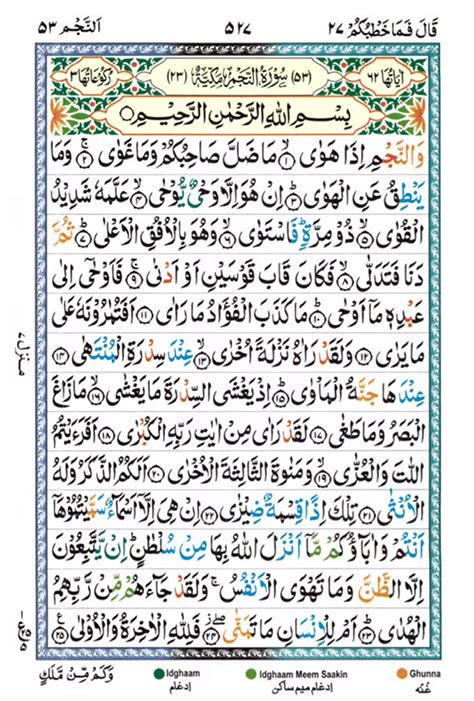 قَالَ فَمَا خَطْبُكُمْ ٢٧ ٥٢٧ اَلنَّجْم ٥٣
اٰيَاتُهَا ٦٢ (٥٣) سُوْرَةُ النَّجْمِ مَكِّيَّةٌ (٢٣) رُكُوْعَاتُهَا ٣
بِسْمِ اللّٰهِ الرَّحْمٰنِ الرَّحِيْمِ ○
وَالنَّجْمِ اِذَا هَوٰى ۙ﴿١﴾ مَا ضَلَّ صَاحِبُكُمْ وَمَا غَوٰى ۚ﴿٢﴾ وَمَا
يَنْطِقُ عَنِ الْهَوٰى ؕ﴿٣﴾ اِنْ هُوَ اِلَّا وَحْيٌ يُّوْحٰى ۙ﴿٤﴾ عَلَّمَهٗ شَدِيْدُ
الْقُوٰى ۙ﴿٥﴾ ذُوْ مِرَّةٍ ؕ فَاسْتَوٰى ۙ﴿٦﴾ وَهُوَ بِالْاُفُقِ الْاَعْلٰى ؕ﴿٧﴾ ثُمَّ
دَنَا فَتَدَلّٰى ۙ﴿٨﴾ فَكَانَ قَابَ قَوْسَيْنِ اَوْ اَدْنٰى ۚ﴿٩﴾ فَاَوْحٰۤى اِلٰى
عَبْدِهٖ مَاۤ اَوْحٰى ؕ﴿١٠﴾ مَا كَذَبَ الْفُؤَادُ مَا رَاٰى ﴿١١﴾ اَفَتُمٰرُوْنَهٗ عَلٰى
مَا يَرٰى ﴿١٢﴾ وَلَقَدْ رَاٰهُ نَزْلَةً اُخْرٰى ۙ﴿١٣﴾ عِنْدَ سِدْرَةِ الْمُنْتَهٰى ﴿١٤﴾
عِنْدَهَا جَنَّةُ الْمَاْوٰى ؕ﴿١٥﴾ اِذْ يَغْشَى السِّدْرَةَ مَا يَغْشٰى ۙ﴿١٦﴾ مَا زَاغَ
الْبَصَرُ وَمَا طَغٰى ﴿١٧﴾ لَقَدْ رَاٰى مِنْ اٰيٰتِ رَبِّهِ الْكُبْرٰى ﴿١٨﴾ اَفَرَءَيْتُمُ
اللّٰتَ وَالْعُزّٰى ۙ﴿١٩﴾ وَمَنٰوةَ الثَّالِثَةَ الْاُخْرٰى ﴿٢٠﴾ اَلَكُمُ الذَّكَرُ وَلَهُ
الْاُنْثٰى ﴿٢١﴾ تِلْكَ اِذًا قِسْمَةٌ ضِيْزٰى ﴿٢٢﴾ اِنْ هِيَ اِلَّاۤ اَسْمَآءٌ سَمَّيْتُمُوْهَاۤ
اَنْتُمْ وَاٰبَآؤُكُمْ مَّاۤ اَنْزَلَ اللّٰهُ بِهَا مِنْ سُلْطٰنٍ ؕ اِنْ يَّتَّبِعُوْنَ
اِلَّا الظَّنَّ وَمَا تَهْوَى الْاَنْفُسُ ۚ وَلَقَدْ جَآءَهُمْ مِّنْ رَّبِّهِمُ
الْهُدٰى ؕ﴿٢٣﴾ اَمْ لِلْاِنْسَانِ مَا تَمَنّٰى ۖ﴿٢٤﴾ فَلِلّٰهِ الْاٰخِرَةُ وَالْاُوْلٰى ﴿٢٥﴾
منزل ٧
وَكَمْ مِّنْ مَّلَكٍ
Idghaam
اِدْغَام
Idghaam Meem Saakin
اِدْغَام مِیْم سَاکِن
Ghunna
غُنَّه